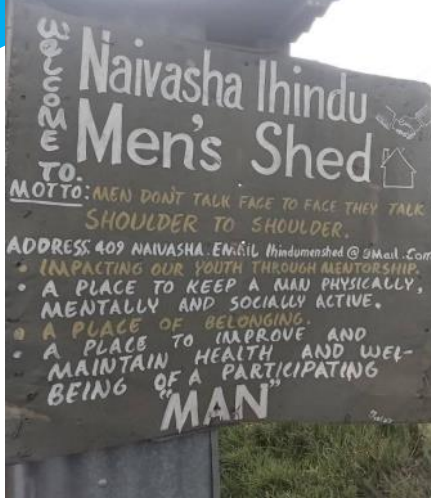 WELCOME
TO.
Naivasha Ihindu
Men's Shed
MOTTO: MEN DON'T TALK FACE TO FACE THEY TALK
SHOULDER TO SHOULDER.
ADDRESS 409 NAIVASHA. EMAIL Ihindumenshed@gmail.Com
• IMPACTING OUR YOUTH THROUGH MENTORSHIP.
• A PLACE TO KEEP A MAN PHYSICALLY,
MENTALLY AND SOCIALLY ACTIVE.
• A PLACE OF BELONGING.
• A PLACE TO IMPROVE AND
MAINTAIN HEALTH AND WEL-
BEING OF A PARTICIPATING
"MAN"